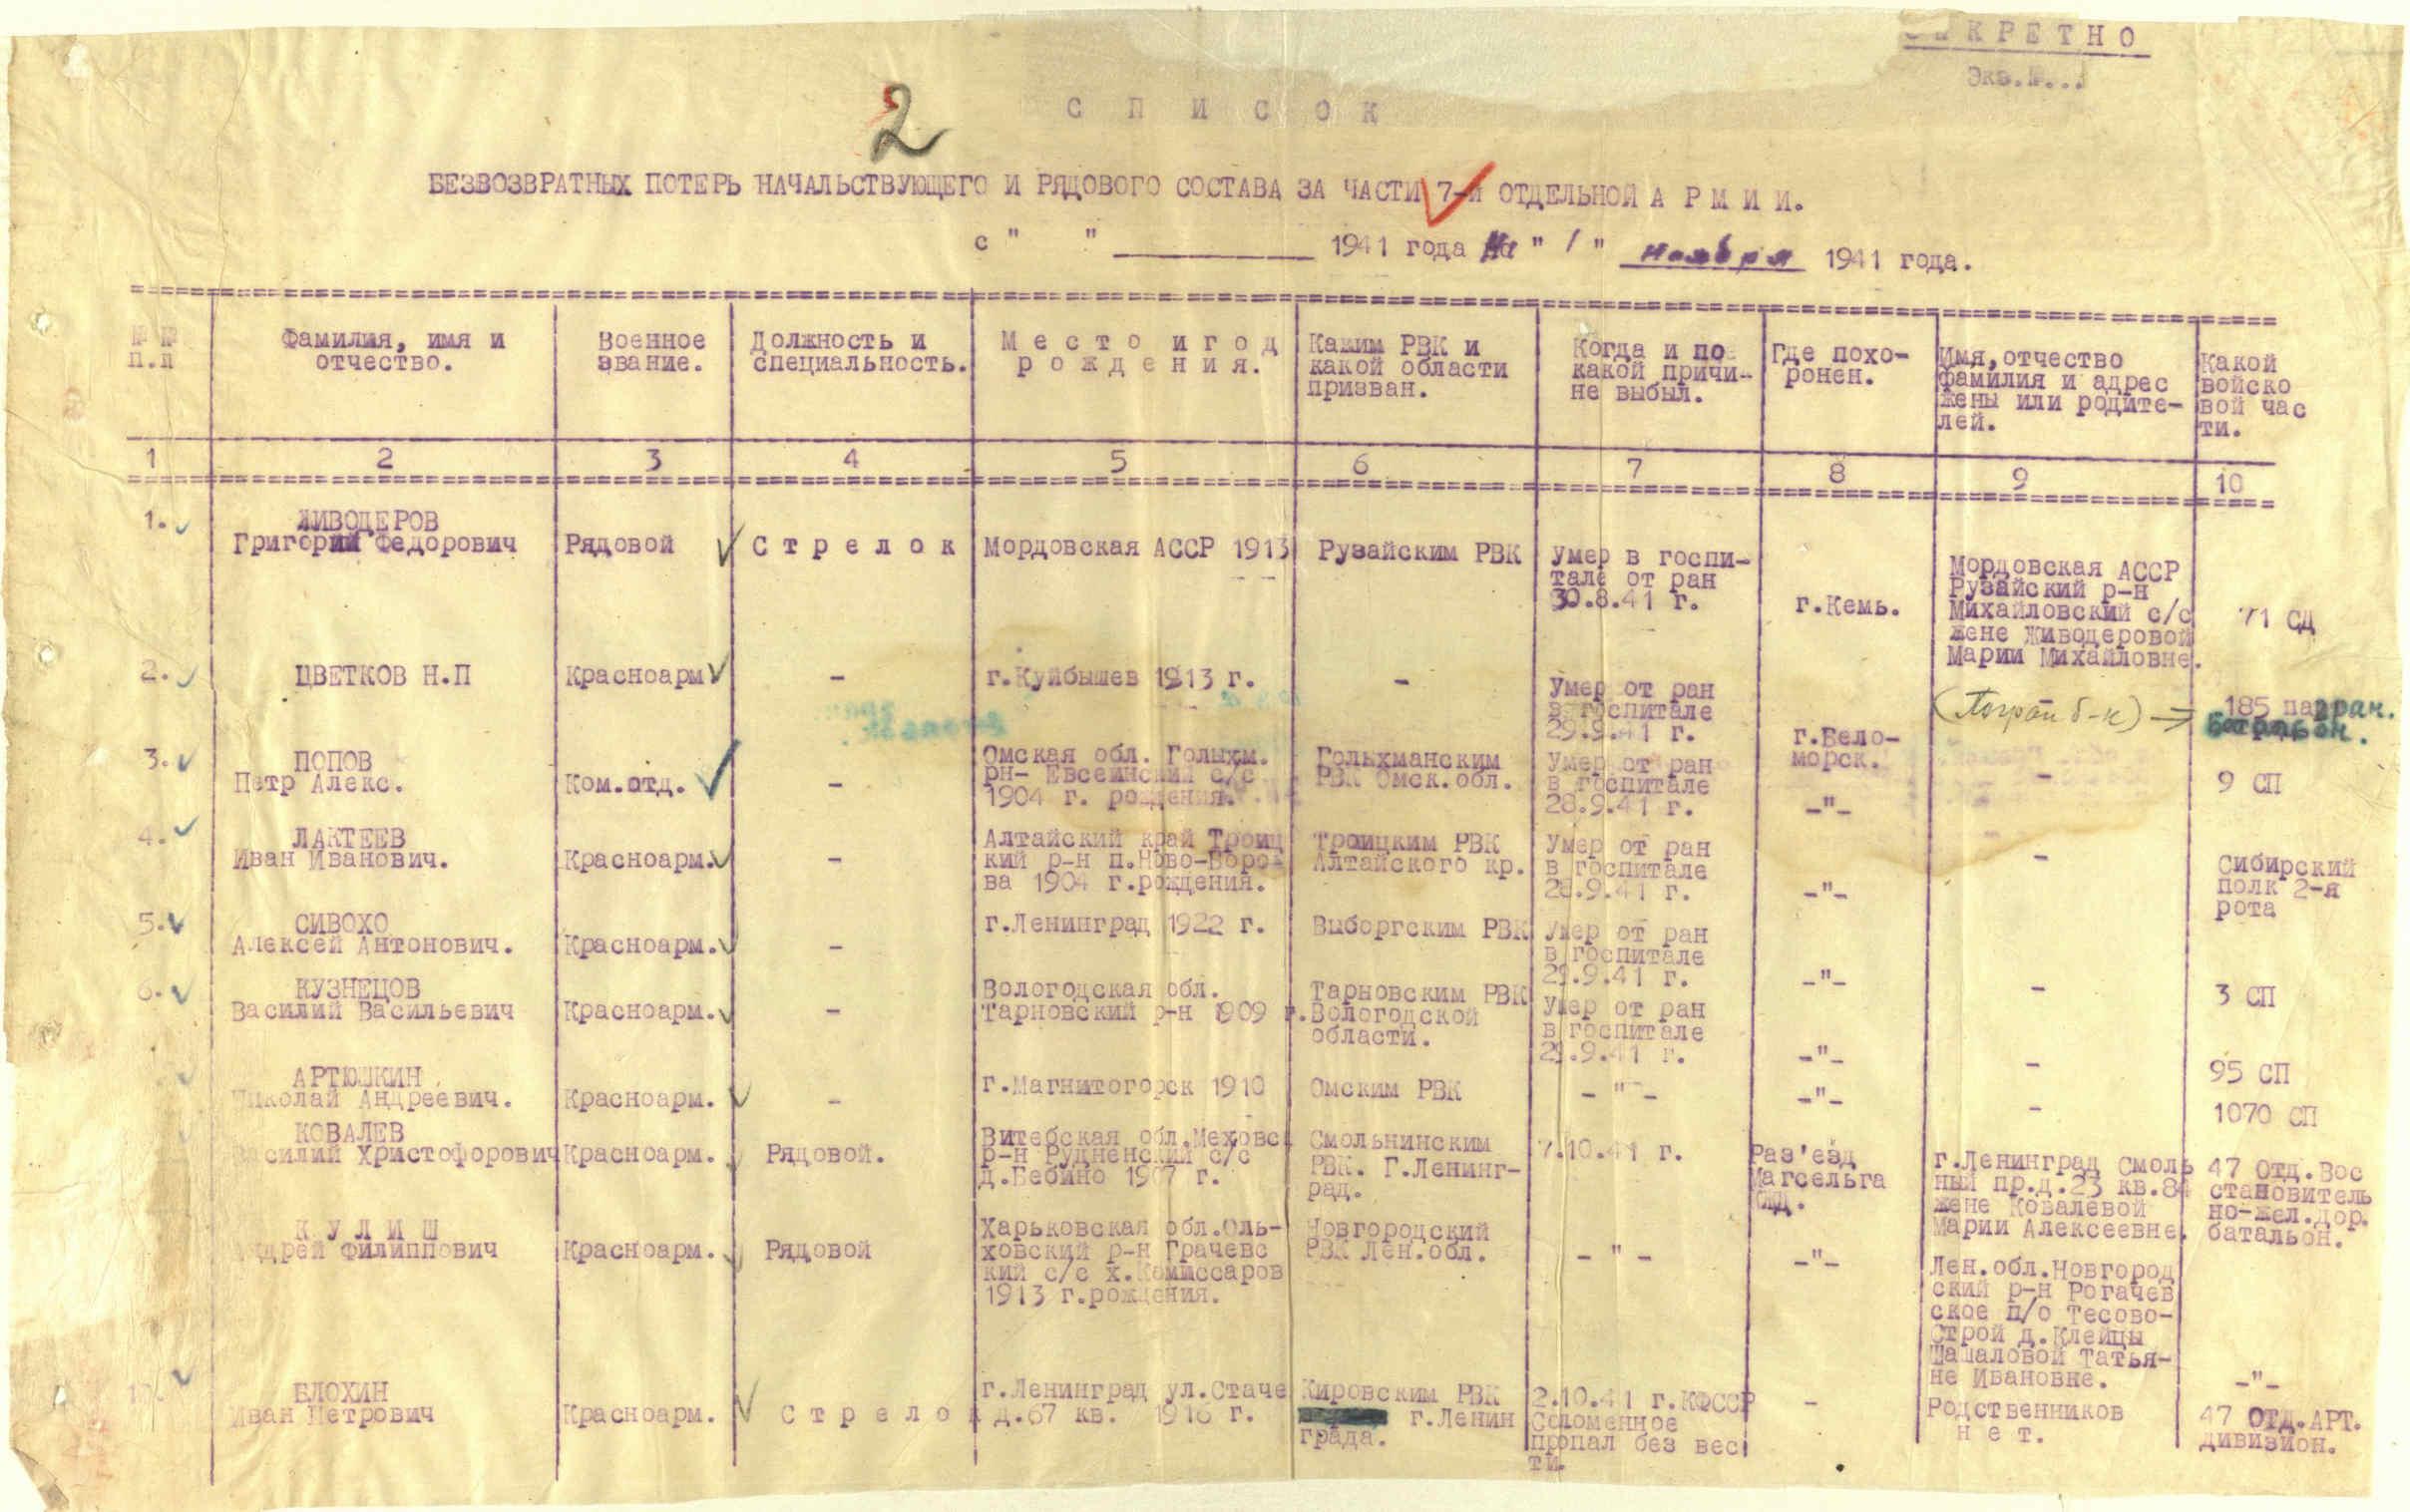 СЕКРЕТНО
Экз.№...
2
С П И С О К
БЕЗВОЗВРАТНЫХ ПОТЕРЬ НАЧАЛЬСТВУЮЩЕГО И РЯДОВОГО СОСТАВА ЗА ЧАСТИ 7-й ОТДЕЛЬНОЙ А Р М И И.
с " " 1941 года на " 1 " ноября 1941 года.
№ №
п.п
Фамилия, имя и
отчество.
Военное
звание.
Должность и
специальность.
М е с т о и г о д
р о ж д е н и я.
Каким РВК и
какой области
призван.
Когда и по
какой причи-
не выбыл.
Где похо-
ронен.
Имя, отчество
фамилия и адрес
жены или родите-
лей.
Какой
войско
вой час
ти.
1 2 3 4 5 6 7 8 9 10
1.
ЖИВОДЕРОВ
Григорий Федорович
Рядовой
С т р е л о к
Мордовская АССР 1913
Рузайским РВК
Умер в госпи-
тале от ран
30.8.41 г.
г.Кемь.
Мордовская АССР
Рузайский р-н
Михайловский с/с
жене Живодеровой
Марии Михайловне.
71 СД
2.
ЦВЕТКОВ Н.П
Красноарм
-
г.Куйбышев 1913 г.
-
Умер от ран
в госпитале
29.9.41 г.
г.Бело-
морск.
(Погран б-н)
185 погран.
батальон.
3.
ПОПОВ
Петр Алекс.
Ком.отд.
-
Омская обл. Голыхм.
рн- Евсеинский с/с
1904 г. рождения.
Голыхманским
РВК Омск.обл.
Умер от ран
в госпитале
28.9.41 г.
-"-
-
9 СП
4.
ЛАКТЕЕВ
Иван Иванович.
Красноарм.
-
Алтайский край Троиц
кий р-н п.Ново-Воро
ва 1904 г.рождения.
Троицким РВК
Алтайского кр.
Умер от ран
в госпитале
28.9.41 г.
-"-
-
Сибирский
полк 2-я
рота
5.
СИВОХО
Алексей Антонович.
Красноарм.
-
г.Ленинград 1922 г.
Выборгским РВК
Умер от ран
в госпитале
29.9.41 г.
-"-
-
3 СП
6.
КУЗНЕЦОВ
Василий Васильевич
Красноарм.
-
Вологодская обл.
Тарновский р-н 1909 г.
Тарновским РВК
Вологодской
области.
Умер от ран
в госпитале
29.9.41 г.
-"-
-
95 СП
АРТЮШКИН
Николай Андреевич.
Красноарм.
-
г.Магнитогорск 1910
Омским РВК
- " -
-"-
-
1070 СП
КОВАЛЕВ
Василий Христофорович
Красноарм.
Рядовой.
Витебская обл.Меховс
р-н Рудненский с/с
д.Бебино 1907 г.
Смольнинским
РВК. Г.Ленинг-
рад.
7.10.41 г.
Раз'езд
Масельга
жд.
г.Ленинград Смоль
ный пр.д.23 кв.84
жене Ковалевой
Марии Алексеевне.
47 Отд.Вос
становитель
но-жел.дор.
батальон.
К У Л И Ш
Андрей Филиппович
Красноарм.
Рядовой
Харьковская обл.Оль-
ховский р-н Грачевс
кий с/с х.Комиссаров
1913 г.рождения.
Новгородский
РВК Лен.обл.
- " -
-"-
Лен.обл.Новгород
ский р-н Рогачев
ское п/о Тесово-
Строй д.Клейцы
Шашаловой Татья-
не Ивановне.
-"-
10.
БЛОХИН
Иван Петрович
Красноарм.
С т р е л о к
г.Ленинград ул.Стаче
д.67 кв. 1916 г.
Кировским РВК
г.Ленин
града.
2.10.41 г.КФССР
Соломенное
пропал без вес
ти.
-
Родственников
н е т.
47 ОТД.АРТ.
дивизион.